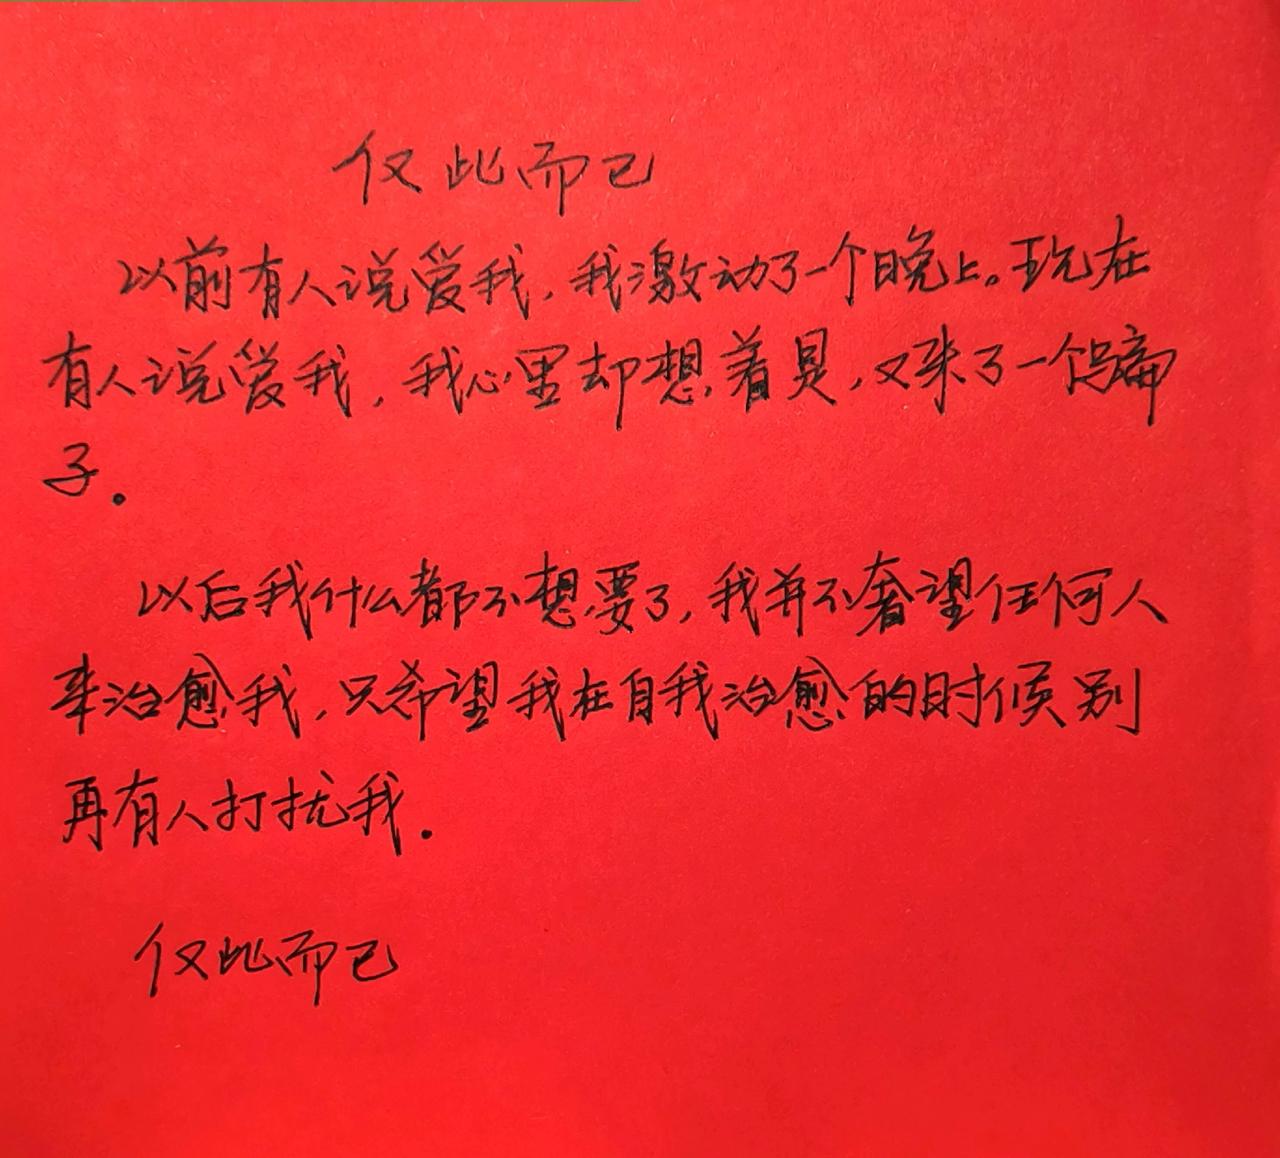 仅此而已
以前有人说爱我,我激动了一个晚上。现在
有人说爱我,我心里却想着是,又来了一个骗
子.
以后我什么都不想要了,我并不奢望任何人
来治愈我,只希望我在自我治愈的时候别
再有人打扰我.
仅此而已